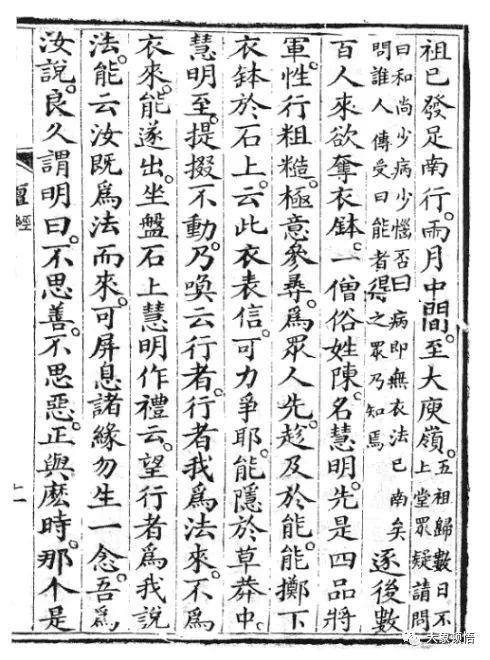 祖已發足南行。兩月中間。至大庾嶺。五祖歸數日不
上堂眾疑請問
曰和尚少病少惱否曰病即無衣法已南矣
問誰人傳受曰能者得之眾乃知焉
逐後數
百人來欲奪衣鉢。一僧俗姓陳。名慧明。先是四品將
軍。性行粗糙。極意參尋。爲眾人先。趁及於能。能擲下
衣鉢於石上。云此衣表信。可力爭耶。能隱於草莽中。
慧明至。提掇不動。乃喚云行者。行者我爲法來。不爲
衣來。能遂出。坐盤石上慧明作禮云。望行者爲我說
法。能云汝既爲法而來。可屏息諸緣勿生一念。吾爲
汝說。良久謂明曰。不思善。不思惡。正與麼時。那个是
壇經